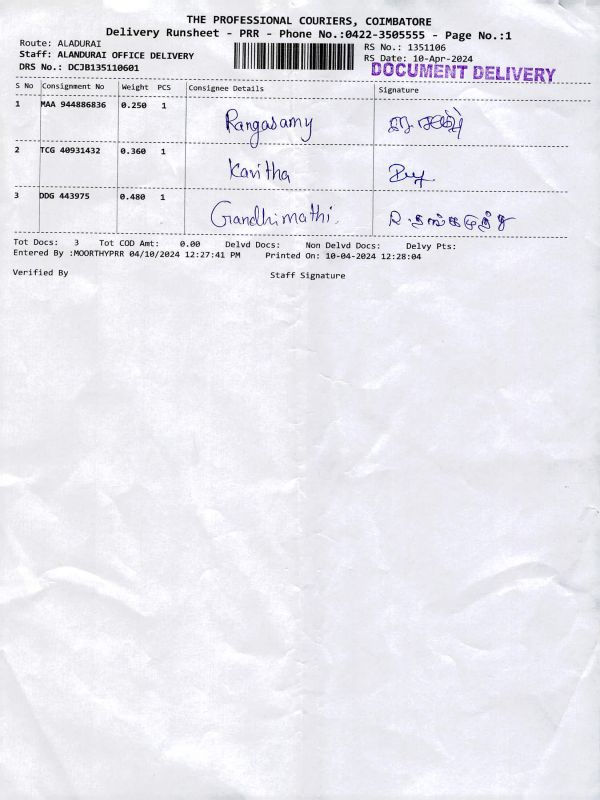 THE PROFESSIONAL COURIERS, COIMBATORE
Delivery Runsheet - PRR - Phone No.:0422-3505555 - Page No.:1
Route: ALADURAI
RS No.: 1351106
Staff: ALANDURAI OFFICE DELIVERY
RS Date: 10-Apr-2024
DRS No.: DCJB135110601
DOCUMENT DELIVERY
S No Consignment No Weight PCS Consignee Details Signature
1 MAA 944886836 0.250 1 Rangasamy
2 TCG 40931432 0.360 1 Kavitha
3 DDG 443975 0.480 1 Gandhimathi.
Tot Docs: 3 Tot COD Amt: 0.00 Delvd Docs: Non Delvd Docs: Delvy Pts:
Entered By :MOORTHYPRR 04/10/2024 12:27:41 PM Printed On: 10-04-2024 12:28:04
Verified By Staff Signature